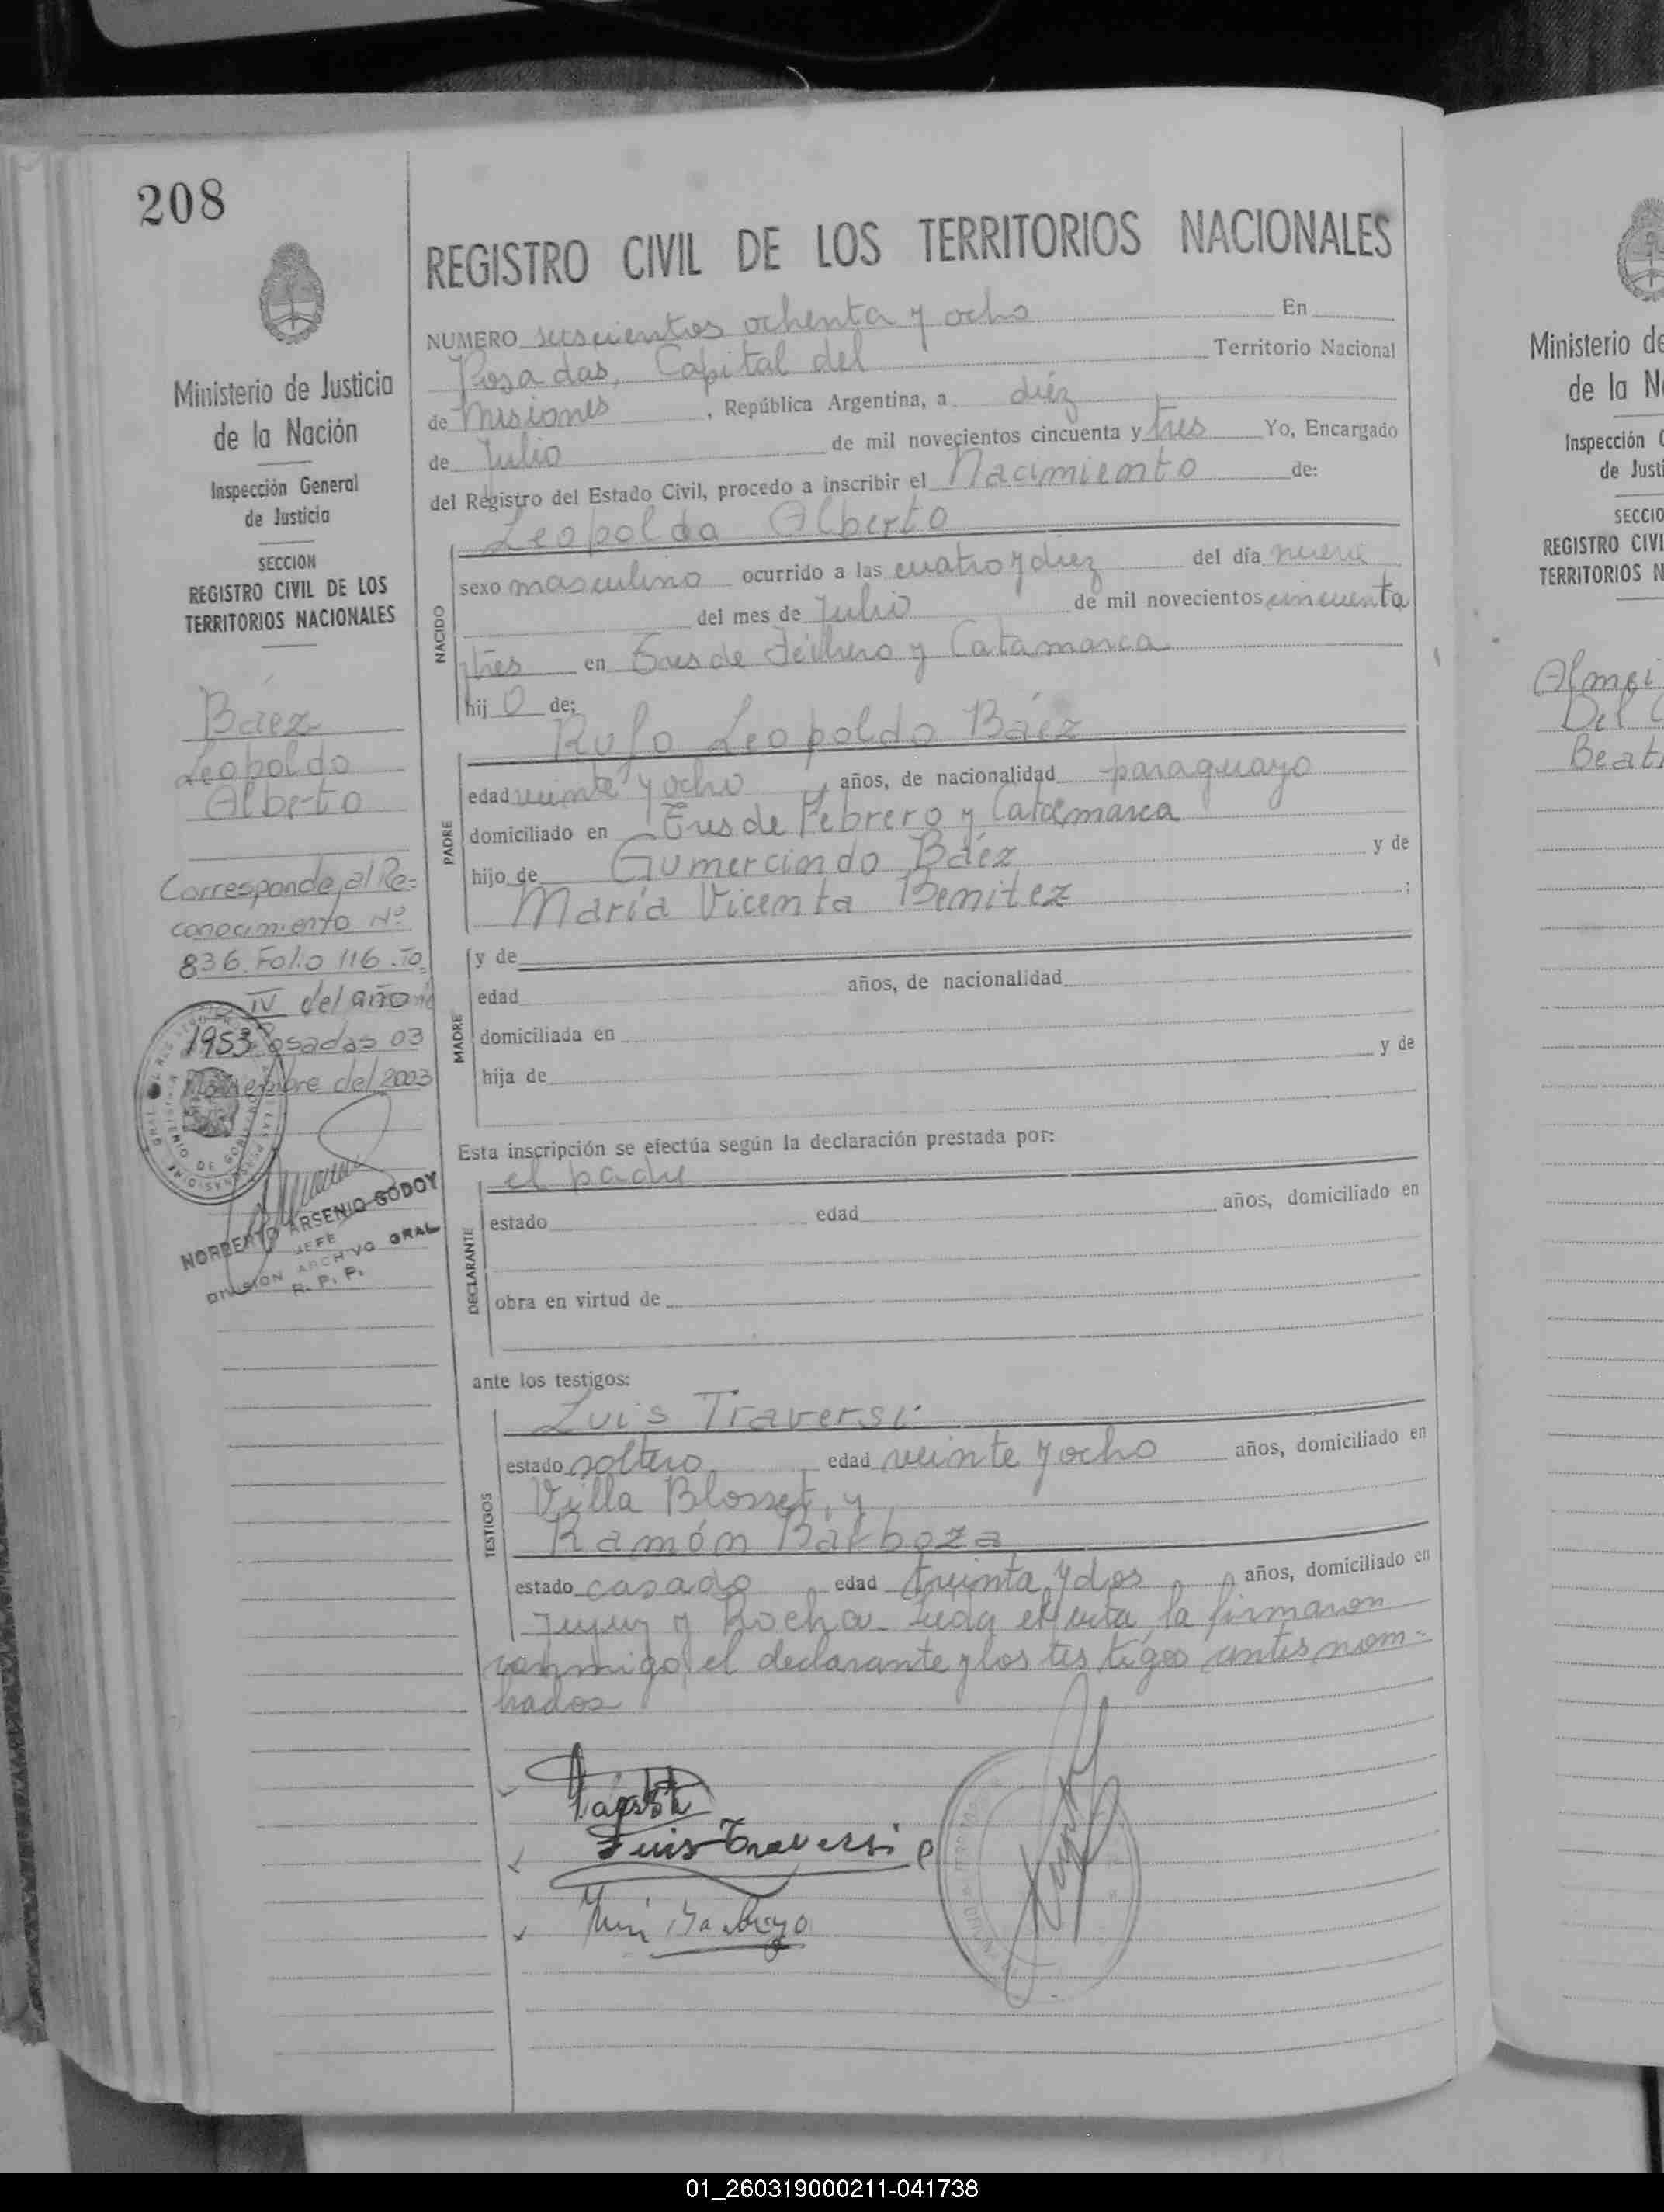 208
REGISTRO CIVIL DE LOS TERRITORIOS NACIONALES
NUMERO seiscientos ochenta y ocho En
Posadas, Capital del Territorio Nacional
de Misiones, República Argentina, a diéz
de Julio de mil novecientos cincuenta y tres Yo, Encargado
del Registro del Estado Civil, procedo a inscribir el Nacimiento de:
Leopoldo Alberto
NACIDO
sexo masculino ocurrido a las cuatro y diez del día nueve
del mes de Julio de mil novecientos cincuenta
y tres en Tres de Febrero y Catamarca
hijo de:
Rufo Leopoldo Báez
PADRE
edad veinte y ocho, años, de nacionalidad paraguayo
domiciliado en Tres de Febrero y Catamarca
hijo de Gumercindo Báez y de
María Vicenta Benitez ;
MADRE
y de
edad años, de nacionalidad
domiciliada en
hija de y de
Esta inscripción se efectúa según la declaración prestada por:
el padre
DECLARANTE
estado edad años, domiciliado en
obra en virtud de
ante los testigos:
TESTIGOS
Luis Traversi
estado soltero edad veinte y ocho años, domiciliado en
Villa Blosset, y
Ramón Barboza
estado casado edad treinta y dos, años, domiciliado en
Jujuy y Rocha. Leída el acta, la firmaron
conmigo el declarante y los testigos antes nom-
brados
Luis Traversi
Ministerio de Justicia
de la Nación
Inspección General
de Justicia
SECCION
REGISTRO CIVIL DE LOS
TERRITORIOS NACIONALES
Báez
Leopoldo
Alberto
Corresponde al Re-
conocimiento Nº
836. Folio 116. To
IV del año
1953 Posadas 03
Noviembre del 2003
NORBERTO ARSENIO GODOY
JEFE
DIVISION ARCHIVO GRAL
R. P. P.
Ministerio de
de la N
Inspección
de Justi
SECCIO
REGISTRO CIVI
TERRITORIOS N
Almei
Del
Beat
01_260319000211-041738